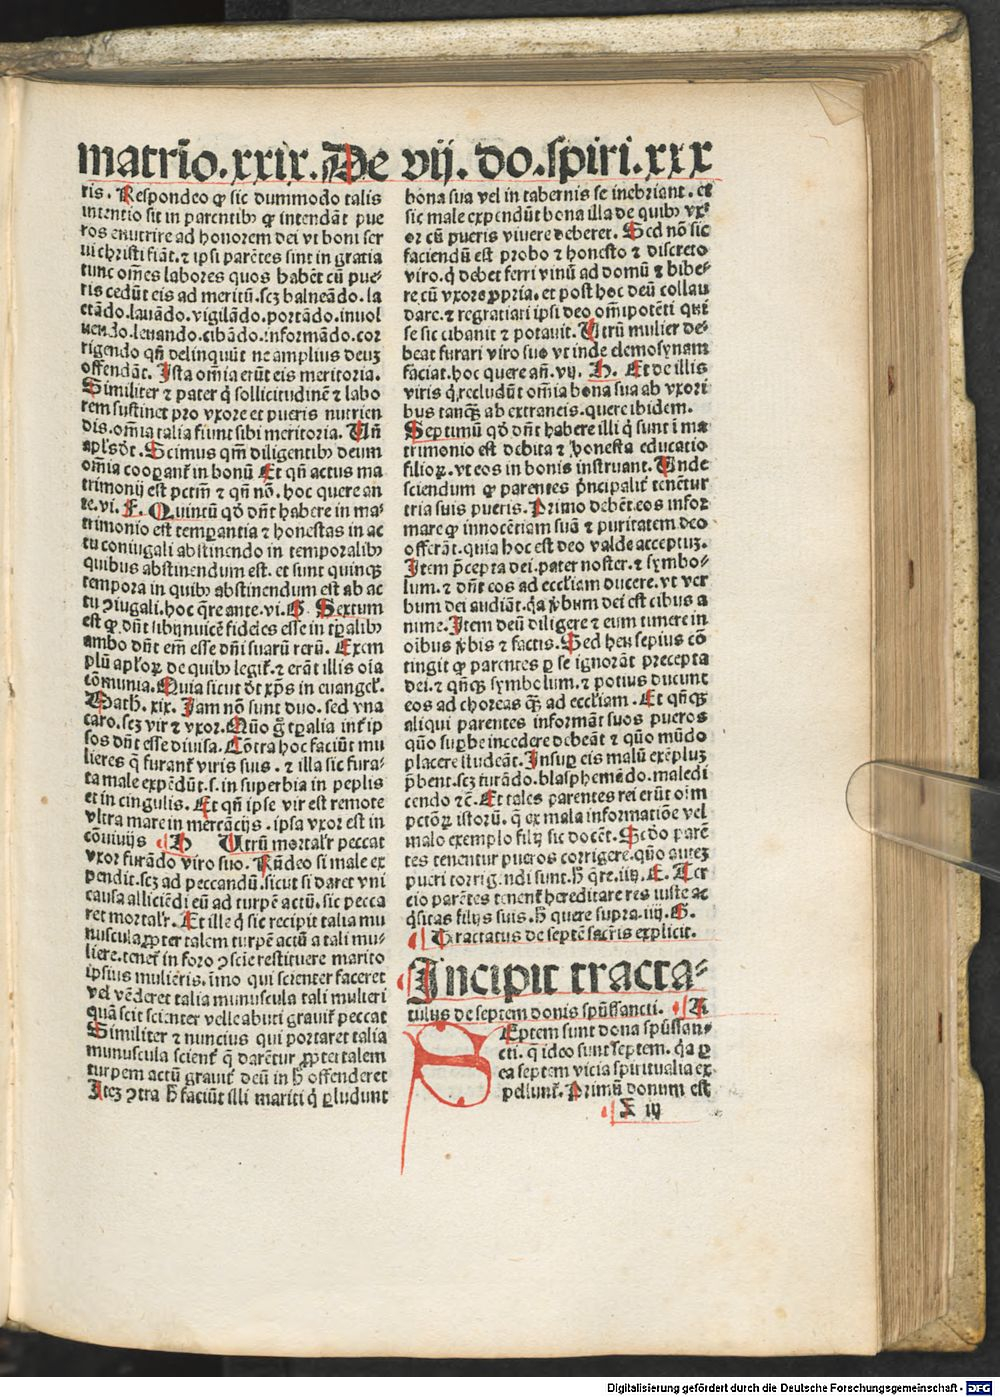 matrīo.xxix.De vij. do.spiri.xxx
ris. Respondeo ꝙ sic dummodo talis
intentio sit in parentibꝰ ꝙ intendāt pue
ros enutrire ad honorem dei vt boni ser
ui christi fiāt. ⁊ ipsi parētes sint in gratia
tunc om̄es labores quos habēt cū pue⸗
ris cedūt eis ad meritū. scꝫ balneādo. la
ctādo. lauādo. vigilādo. portādo. inuol
uendo. leuando. cibādo. informādo. cor
rigendo qn̄ delinquūt ne amplius deuꝫ
offendāt. Ista om̄ia erūt eis meritoria.
Similiter ⁊ pater q̇ sollicitudinē ⁊ labo
rem sustinet pro vxore et pueris nutrien
dis. om̄ia talia fiunt sibi meritoria. Vn̄
apl's dt̄. Scimus qm̄ diligentibꝰ deum
om̄ia cooꝑant' in bonū Et qn̄ actus ma
trimonij est pctm̄ ⁊ qn̄ nō. hoc quere an
te. vi. F. Quintū qd̄ dn̄t habere in ma⸗
trimonio est temꝑantia ⁊ honestas in ac
tu coniugali abstinendo in temporalibꝰ
quibus abstinendum est. et sunt quinqꝫ
tempora in quibꝰ abstinendum est ab ac
tu ꝯiugali. hoc q̄re ante. vi. G. Sextum
est ꝙ dn̄t sibijnuicē fideles esse in tꝑalibꝰ
ambo dn̄t em̄ esse dn̄i suarū rerū. Exem
plū apl'oꝝ de quibꝰ legit' ⁊ erāt illis oīa
cōmunia. Quia sicut dt̄ xp̄s in euangel'.
Math. xix. Jam nō sunt duo. sed vna
caro. scꝫ vir ⁊ vxor. Quō g̊ tꝑalia int' ip
sos dn̄t esse diuisa. Cōtra hoc faciūt mu
lieres q̄ furant' viris suis. ⁊ illa sic fura⸗
ta male expēdūt. s. in superbia in peplis
et in cingulis. Et qn̄ ipse vir est remote
vltra mare in mercācijs. ipsa vxor est in
cōuiuijs ¶ D Vtrū mortal'r peccat
vxor furādo viro suo. Rn̄deo si male ex
pendit. scꝫ ad peccandū. sicut si daret vni
causa alliciēdi eū ad turpē actū. sic pecca
ret mortal'r. Et ille q̇ sic recipit talia mu
nuscula ꝓpter talem turpē actū a tali mu⸗
liere. tenet' in foro ꝯscīe restituere marito
ipsius mulieris. īmo qui scienter faceret
vel vēderet talia munuscula tali mulieri
quā scit scienter velle abuti grauit' peccat
Similiter ⁊ nuncius qui portaret talia
munuscula scient' q̄ darētur ꝓpter talem
turpem actū grauit' deū in h̄ offenderet
Iteꝫ ꝯtra h̄ faciūt illi mariti q̇ ꝑludunt
bona sua vel in tabernis se inebriant. et
sic male expendūt bona illa de quibꝰ vx⸗
or cū pueris viuere deberet. Sed nō sic
faciendū est probo ⁊ honesto ⁊ discreto
viro. q̇ debet ferri vinū ad domū ⁊ bibe⸗
re cū vxore ꝓpria. et post hoc deū collau
dare. ⁊ regratiari ipsi deo om̄ipotēti qui
se sic cibauit ⁊ potauit. Vtrū mulier de⸗
beat furari viro suo vt inde elemosynam
faciat. hoc quere an̄. vij. H. Et de illis
viris q̇ recludūt om̄ia bona sua ab vxori
bus tanqꝫ ab extraneis. quere ibidem.
Septimū qd̄ dn̄t habere illi q̇ sunt ī ma
trimonio est debita ⁊ honesta educatio
filioꝝ. vt eos in bonis instruant. Vnde
sciendum ꝙ parentes p̄ncipalit' tenētur
tria suis pueris. Primo debēt eos infor
mare ꝙ innocētiam suā ⁊ puritatem deo
offerāt. quia hoc est deo valde acceptuꝫ.
Item p̄cepta dei. pater noster. ⁊ symbo⸗
lum. ⁊ dn̄t eos ad eccl'iam ducere. vt ver
bum dei audiāt. q̇a v̓bum dei est cibus a
nime. Item deū diligere ⁊ eum timere in
oībus v̓bis ⁊ factis. Sed heu sepius cō
tingit ꝙ parentes ꝑ se ignorāt precepta
dei. ⁊ qn̄qꝫ symbolum. ⁊ potius ducunt
eos ad choreas qꝫ ad eccl'iam. Et qn̄qꝫ
aliqui parentes informāt suos pueros
quō suꝑbe incedere debeāt ⁊ quō mūdo
placere studeāt. Insuꝑ eis malū exēpluꝫ
p̄bent. scꝫ iurādo. blasphemādo. maledi
cendo ⁊c̄. Et tales parentes rei erūt oīm
pctōꝝ istorū. q̄ ex mala informatiōe vel
malo exemplo filij sic docēt. Scd̄o parē
tes tenentur pueros corrigere. quō auteꝫ
pueri corrigendi sunt. h̄ q̄re. iiij. E. Ter
cio parētes tenent' hereditare res iuste ac
q̇sitas filijs suis. h̄ quere supra. iiij. G.
¶ Tractatus de septē sacr̄is explicit.
¶ Incipit tracta⸗
tulus de septem donis sp̄ussancti. ¶ A
SEptem sunt dona sp̄ussan⸗
cti. q̄ ideo sunt septem. q̇a ꝑ
ea septem vicia spiritualia ex
pellunt'. Primū donum est
¶ F iij
Digitalisierung gefördert durch die Deutsche Forschungsgemeinschaft - DFG